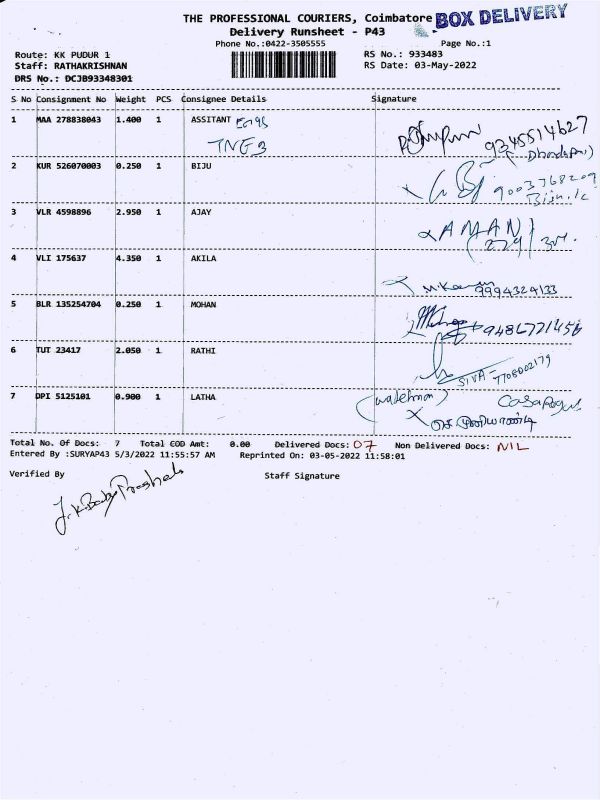 THE PROFESSIONAL COURIERS, Coimbatore BOX DELIVERY
Delivery Runsheet - P43
Phone No.:0422-3505555 Page No.:1
Route: KK PUDUR 1 RS No.: 933483
Staff: RATHAKRISHNAN RS Date: 03-May-2022
DRS No.: DCJB93348301
S No Consignment No Weight PCS Consignee Details Signature
1 MAA 278838043 1.400 1 ASSITANT
TNEB 9345514627
2 KUR 526070003 0.250 1 BIJU
9003768209
3 VLR 4598896 2.950 1 AJAY
AMAN
4 VLI 175637 4.350 1 AKILA
9994324133
5 BLR 135254704 0.250 1 MOHAN
9486772145
6 TUT 23417 2.050 1 RATHI
SIVA - 7708002179
7 DPI 5125101 0.900 1 LATHA (watchman)
Total No. Of Docs: 7 Total COD Amt: 0.00 Delivered Docs: 07 Non Delivered Docs: NIL
Entered By :SURYAP43 5/3/2022 11:55:57 AM Reprinted On: 03-05-2022 11:58:01
Verified By Staff Signature